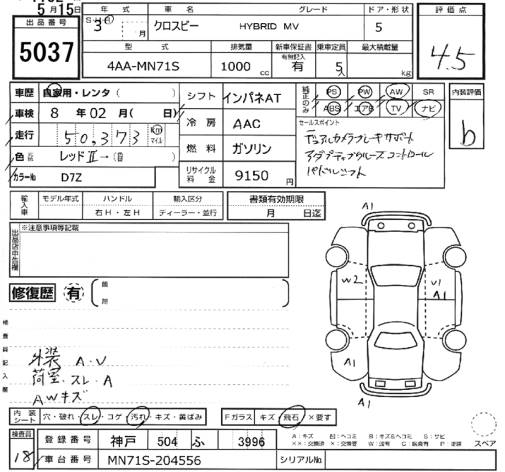 5月15日
出品番号
5037
年式 車名 グレード ドア・形状 評価点
3 月 クロスビー HYBRID MV 5 4.5
型式 排気量 新車保証書 乗車定員 最大積載量
有無記入
4AA-MN71S 1000 cc 有 5人 kg
車歴 自家用・レンタ( ) シフト インパネAT 純正品のみ PS PW AW SR 内装評価
車検 8年 02月( 日) ABS エアB TV ナビ
走行 50,373 km マイル 冷房 AAC セールスポイント b
デュアルカメラブレーキサポート
アダプティブクルーズコントロール
パドルシフト
色 レッドⅡ→( ) 燃料 ガソリン
カラーNo D7Z リサイクル料金 9150円
輸入車 モデル年式 ハンドル 輸入区分 書類有効期限
右H・左H ディーラー・並行 月 日迄
※注意事項等記載
修復歴 有 箇所
A1
W2 U1
A1
A1
A1
検査員記入欄
外装 A.U
荷室.スレ.A
AWキズ
内装シート 穴・破れ・スレ・コゲ・汚れ・キズ・黄ばみ Fガラス キズ・飛石・×要す
検査員 18 登録番号 神戸 504 ふ 3996
A:キズ スペア
車台番号 MN71S-204556 シリアルNo